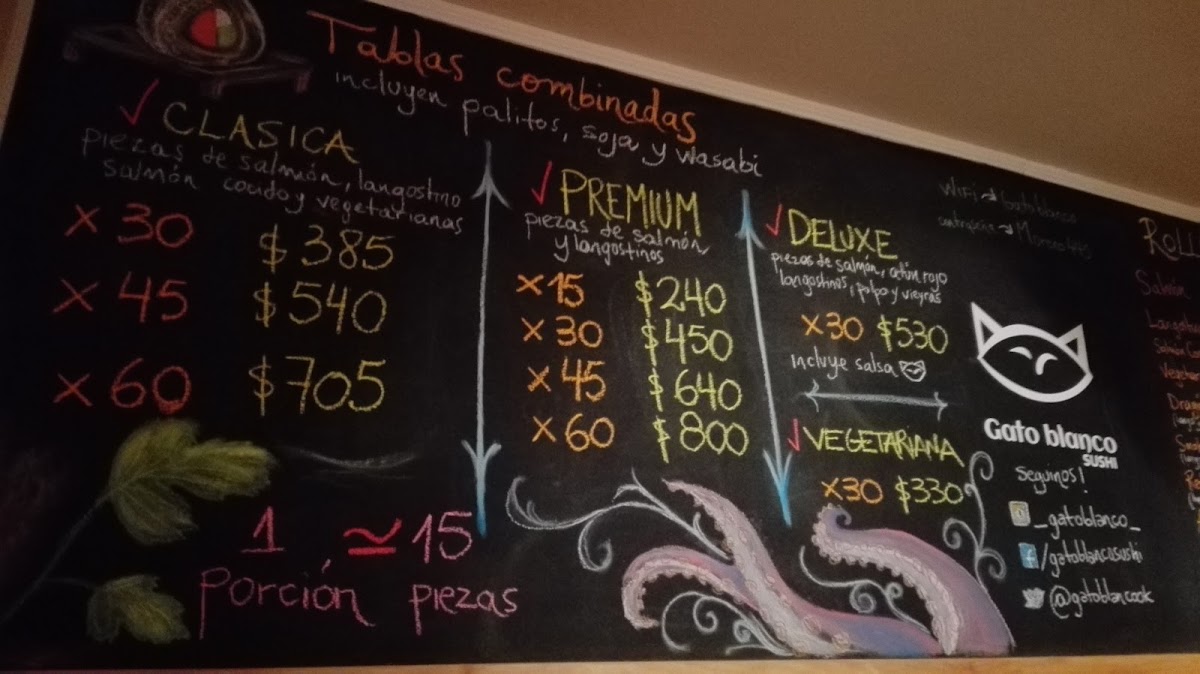 Tablas combinadas
incluyen palitos, soja y wasabi
CLASICA
piezas de salmón, langostino
salmón cocido y vegetarianas
x 30 $385
x 45 $540
x 60 $705
1 ≃ 15
porción piezas
PREMIUM
piezas de salmón
y langostinos
x15 $240
x30 $450
x45 $640
x60 $800
DELUXE
piezas de salmón, atún rojo
langostinos, pulpo y vieyras
x30 $530
incluye salsa
VEGETARIANA
x30 $330
WiFi → Gato blanco
Gato blanco
SUSHI
Seguinos!
_gatoblanco_
/gatoblancosushi
@gatoblancook
ROLL
Salmón